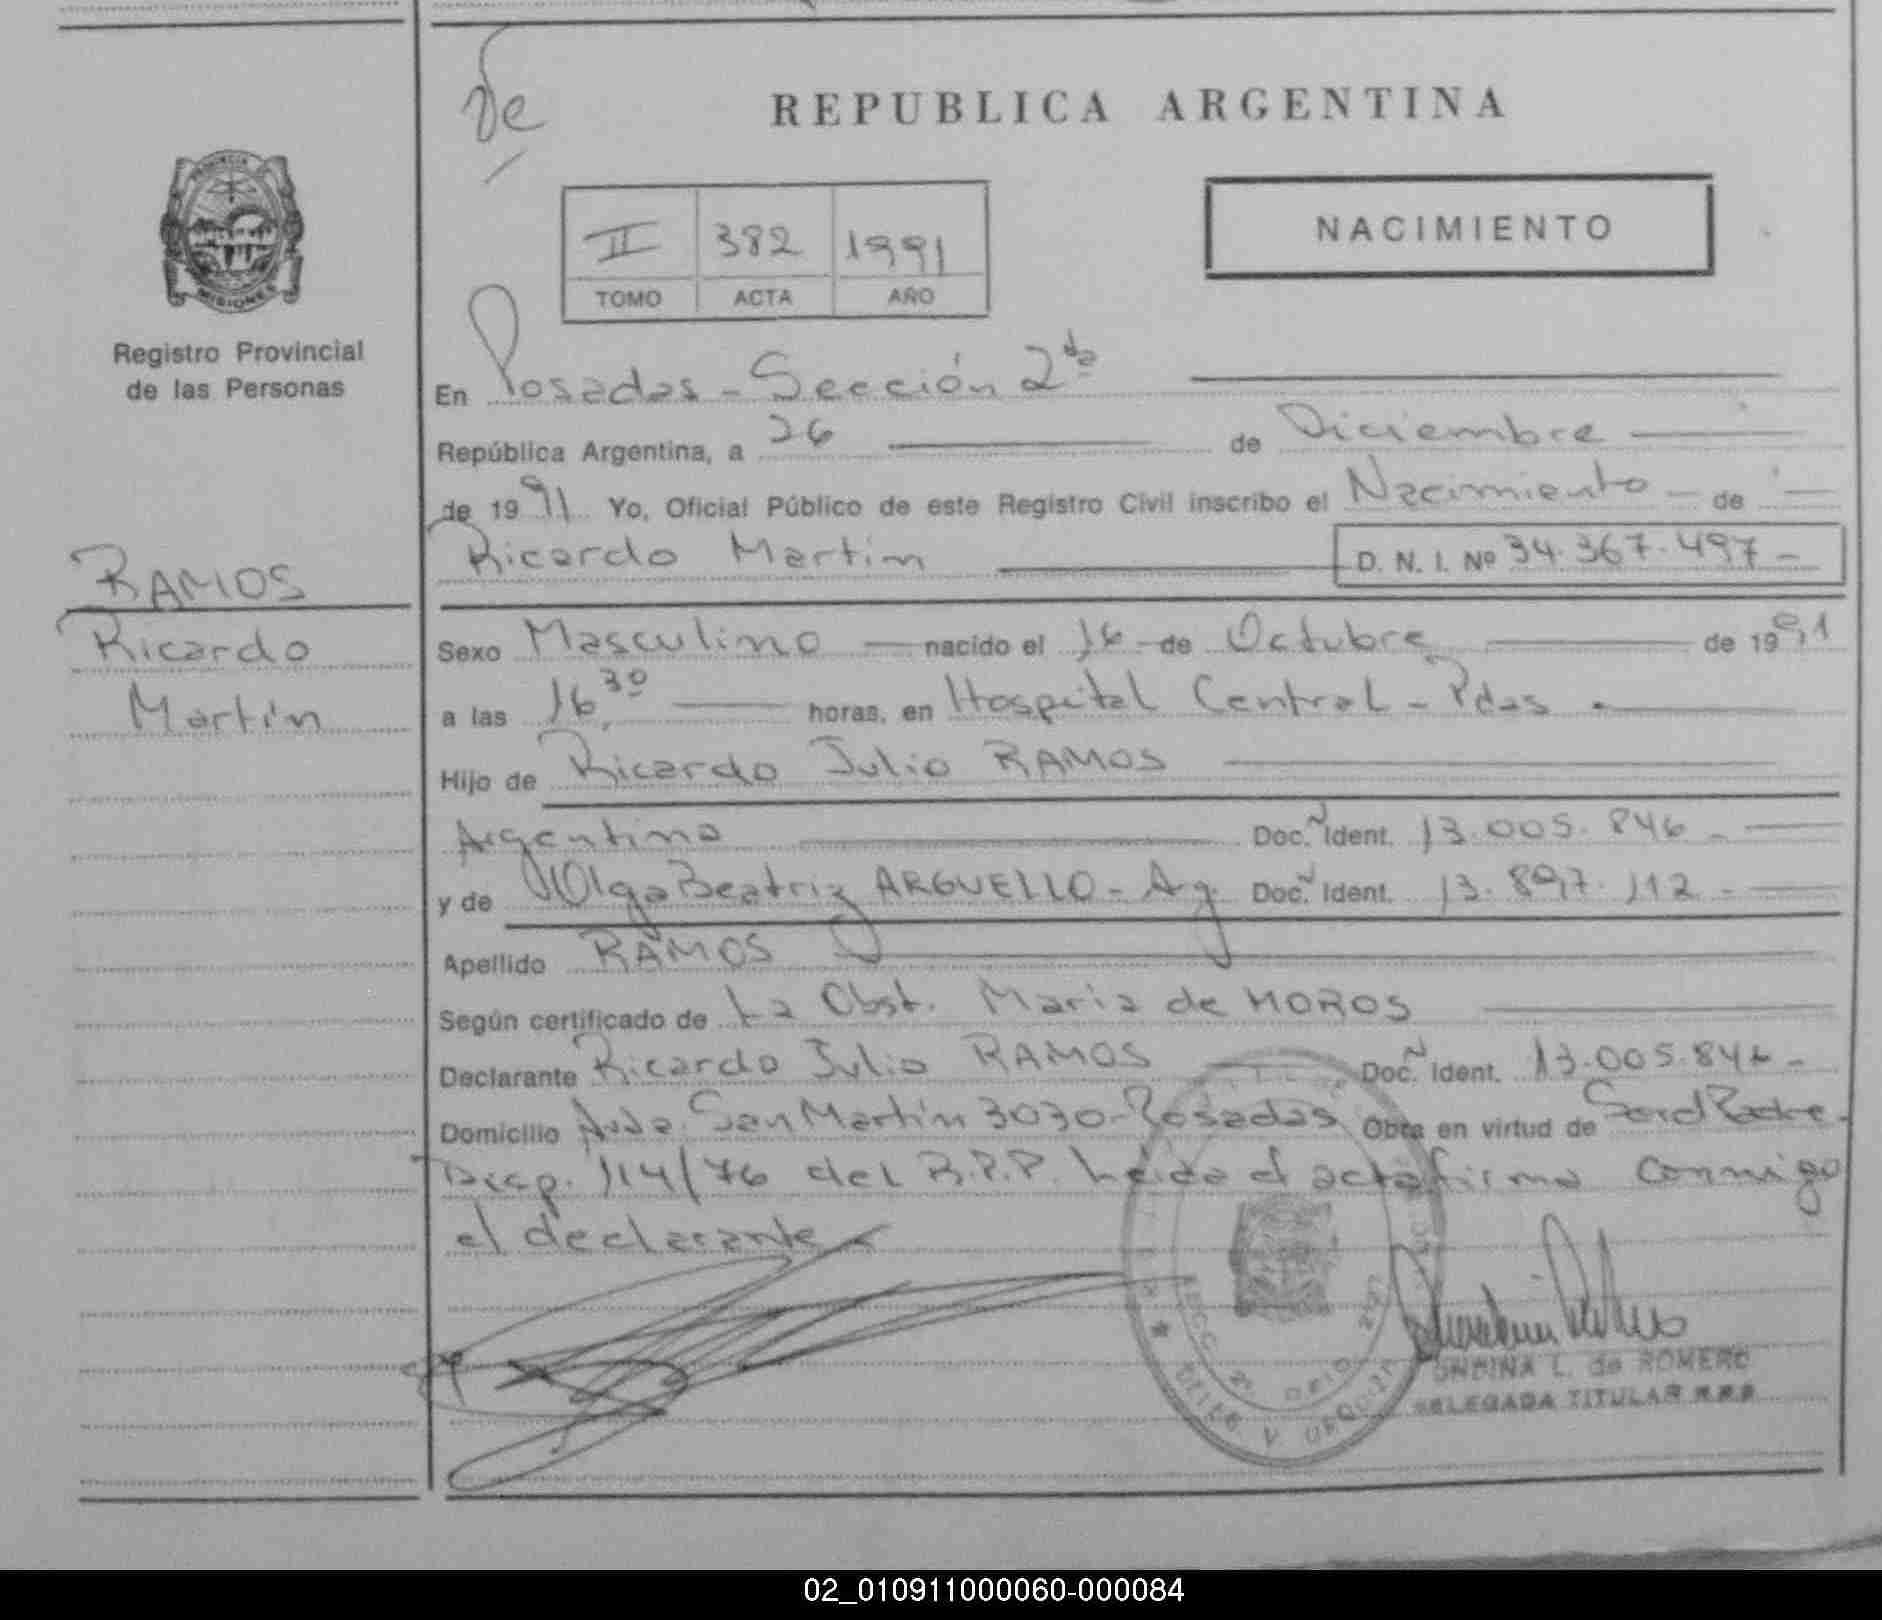 REPUBLICA ARGENTINA
PROVINCIA
MISIONES
Registro Provincial
de las Personas
II 382 1991
TOMO ACTA AÑO
NACIMIENTO
En Posadas - Sección 2da
República Argentina, a 26 de Diciembre
de 1991 Yo, Oficial Público de este Registro Civil inscribo el Nacimiento - de
Ricardo Martin D. N. I. Nº 34.367.497 -
RAMOS
Ricardo
Martín
Sexo Masculino nacido el 16 - de Octubre de 1991
a las 16,30 horas, en Hospital Central - Pdas.
Hijo de Ricardo Julio RAMOS
Argentina Doc. Ident. 13.005.846 -
y de Olga Beatriz ARGUELLO - Arg. Doc. Ident. 13.897.112 -
Apellido RAMOS
Según certificado de La Obst. Maria de MOROS
Declarante Ricardo Julio RAMOS Doc. Ident. 13.005.846 -
Domicilio Avda. San Martín 3030 - Posadas Obra en virtud de Ser el Padre -
Disp. 114/76 del R.P.P. Leída el acta firma conmigo
el declarante
ONDINA L. de ROMERO
DELEGADA TITULAR R.P.P.
02_010911000060-000084